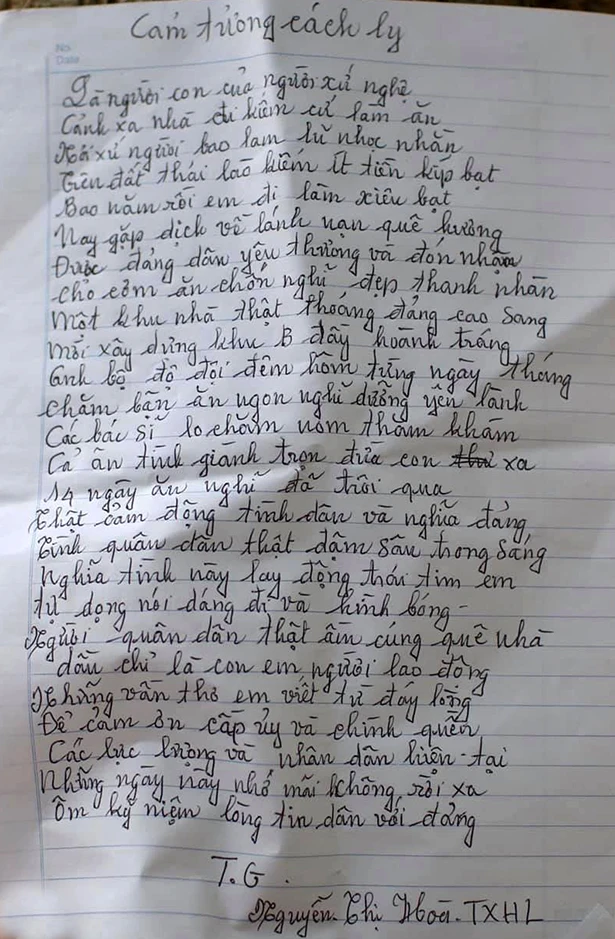 Cảm tưởng cách ly
No.
Date
Là người con của người xứ nghệ
Cảnh xa nhà đi kiếm cứ làm ăn
Nơi xứ người bao lam lũ nhọc nhằn
Trên đất thái lao kiếm ít tiền kúp bạt
Bao năm rồi em đi làm xiêu bạt
Nay gặp dịch về lánh nạn quê hương
Được đảng dân yêu thương và đón nhận
cho cơm ăn chốn nghĩ đẹp thanh nhàn
Một khu nhà thật thoáng đảng cao sang
mới xây dựng khu B đầy hoành tráng
Anh bộ độ đội đêm hôm từng ngày tháng
chăm bẳn ăn ngon nghĩ dưỡng yên lành
Các bác sĩ lo chăm nom thăm khám
Cả ân tình giành trọn đứa con xa
14 ngày ăn nghĩ đã trôi qua
Thật cảm động tình dân và nghĩa đảng
Tình quân dân thật đậm sâu trong sáng
Nghĩa tình này lay động trái tim em
từ dọng nói dáng đi và hình bóng -
Người quân dân thật ấm cúng quê nhà
dẫu chỉ là con em người lao động
Những vần thơ em viết từ đáy lòng
Để cảm ơn cấp ủy và chính quền
Các lực lượng và nhân dân hiện-tại
Những ngày này nhớ mãi không rời xa
Ôm kỹ niệm lòng tin dân với đảng
T.G.
Nguyễn. Thị Hoà. TXHL